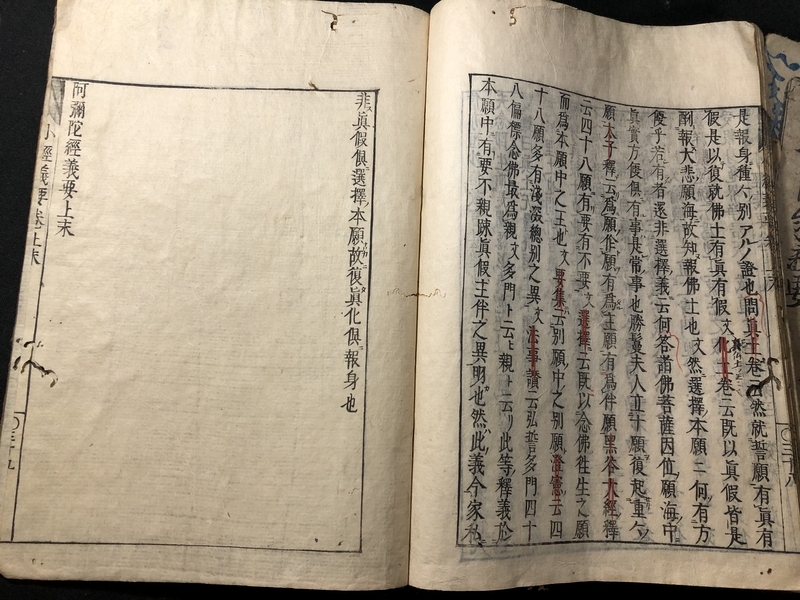 是報身種々別アルノ證也問眞土卷ニ云然就誓願有眞有
假是以復就佛土有眞有假文化土卷云既以眞假皆是
酬報大悲願海故知報佛土也文然選擇本願ニ何有方
便乎若有者還非選擇義云何答諸佛菩薩因位願海中
眞實方便俱有事是常事也勝鬘夫人立十願復起重々
願太子釋云爲願伴願有爲主願有爲伴願黑谷大經釋
云四十八願有要有不要文選擇云既以念佛往生之願
而爲本願中之王也文要集云別願中之別願證憲云四
十八願多有淺深總別之異文法事讚云弘誓多門四十
八偏標念佛最爲親文多門ト云ヒ親ト云リ此等釋義於
本願中有要不親疎眞假主伴之異明也然此義今家私
〇三十八
非眞假俱選擇本願故復眞化俱報身也
阿彌陀經義要上末
小經義要卷上末
〇三十九